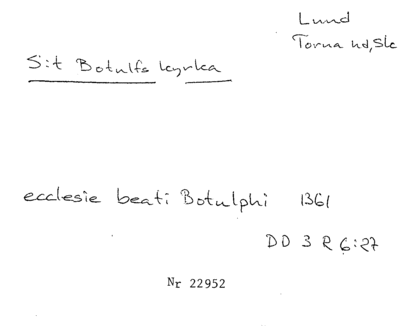 Lund
Torna hd, Sk
S:t Botulfs kyrka
ecclesie beati Botulphi 1361
DD 3 R 6:27
Nr 22952